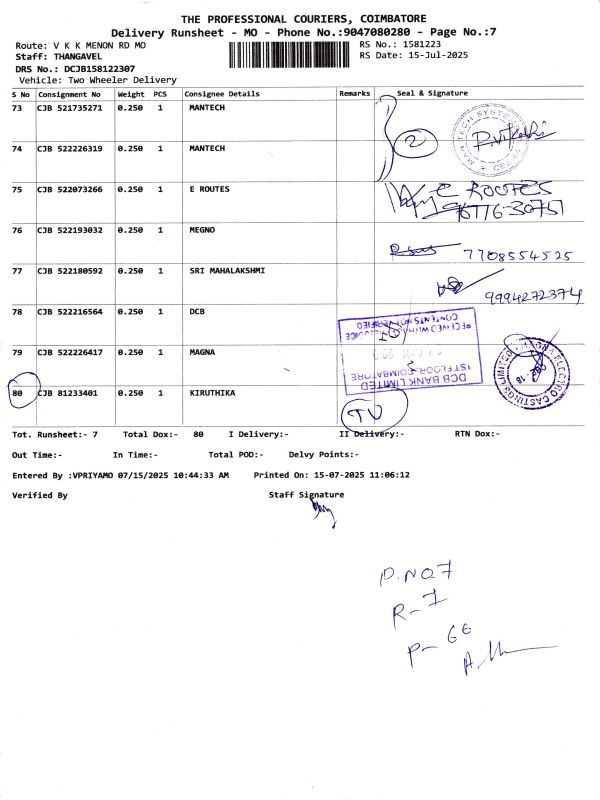 THE PROFESSIONAL COURIERS, COIMBATORE
Delivery Runsheet - MO - Phone No.:9047080280 - Page No.:7
Route: V K K MENON RD MO RS No.: 1581223
Staff: THANGAVEL RS Date: 15-Jul-2025
DRS No.: DCJB158122307
Vehicle: Two Wheeler Delivery
S No Consignment No Weight PCS Consignee Details Remarks Seal & Signature
73 CJB 521735271 0.250 1 MANTECH
2
74 CJB 522226319 0.250 1 MANTECH
75 CJB 522073266 0.250 1 E ROUTES E ROUTES
96776-30751
76 CJB 522193032 0.250 1 MEGNO
7708554525
77 CJB 522180592 0.250 1 SRI MAHALAKSHMI
9994272374
78 CJB 522216564 0.250 1 DCB
RECEIVED WITH
CONTENTS NOT VERIFIED
DCB BANK LIMITED
1ST FLOOR, COIMBATORE
79 CJB 522226417 0.250 1 MAGNA
MAGNA ELECTRO CASTINGS LIMITED
CBE - 18
80 CJB 81233401 0.250 1 KIRUTHIKA
TV
Tot. Runsheet:- 7 Total Dox:- 80 I Delivery:- II Delivery:- RTN Dox:-
Out Time:- In Time:- Total POD:- Delvy Points:-
Entered By :VPRIYAMO 07/15/2025 10:44:33 AM Printed On: 15-07-2025 11:06:12
Verified By Staff Signature
P.NO7
R-7
P-66